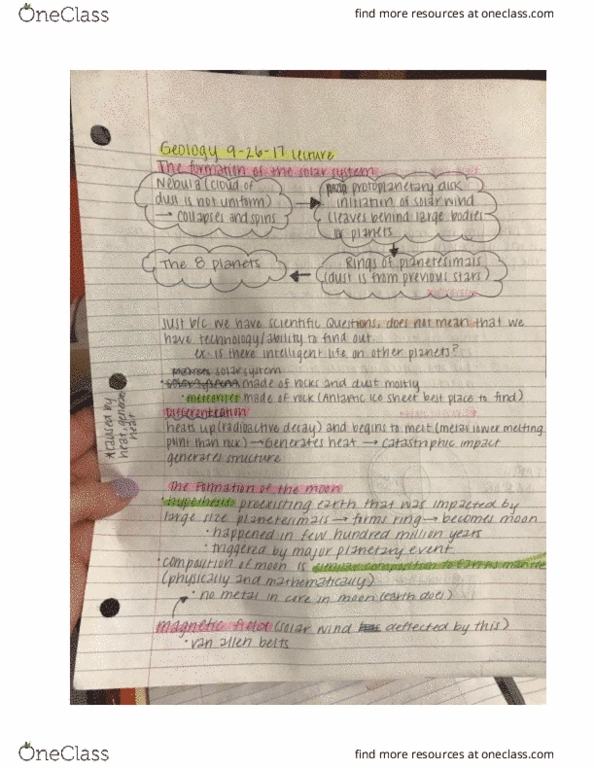 OneClass
find more resources at oneclass.com
Geology 9-26-17 lecture
The formation of the solar system
Nebula (cloud of
dust is not uniform)
→ collapses and spins
protoplanetary disk
initiation of solar wind
(leaves behind large bodies
or planets
Rings of planetesimals
(dust is from previous stars)
The 8 planets
Just b/c we have scientific Questions, does not mean that we
have technology/ability to find out
ex. is there intelligent life on other planets?
solar system
• made of rocks and dust mostly
• meteorites • made of rock (Antantic ice sheet best place to find)
Differentiation
heats up (radioactive decay) and begins to melt (metal lower melting
point than rock) → Generates heat → catastrphic impact
generates structure
*caused by
heat, generates
heat
The Formation of the moon
• hypothesis preexisting earth that was impacted by
large size planetesimals → forms ring → becomes moon
• happened in few hundred million years
• triggered by major planetary event
• composition of moon is similar composition to Earths mantle
(physically and mathematically)
• no metal in core in moon (earth does)
magnetic field (solar wind deflected by this)
• van allen belts
OneClass
find more resources at oneclass.com